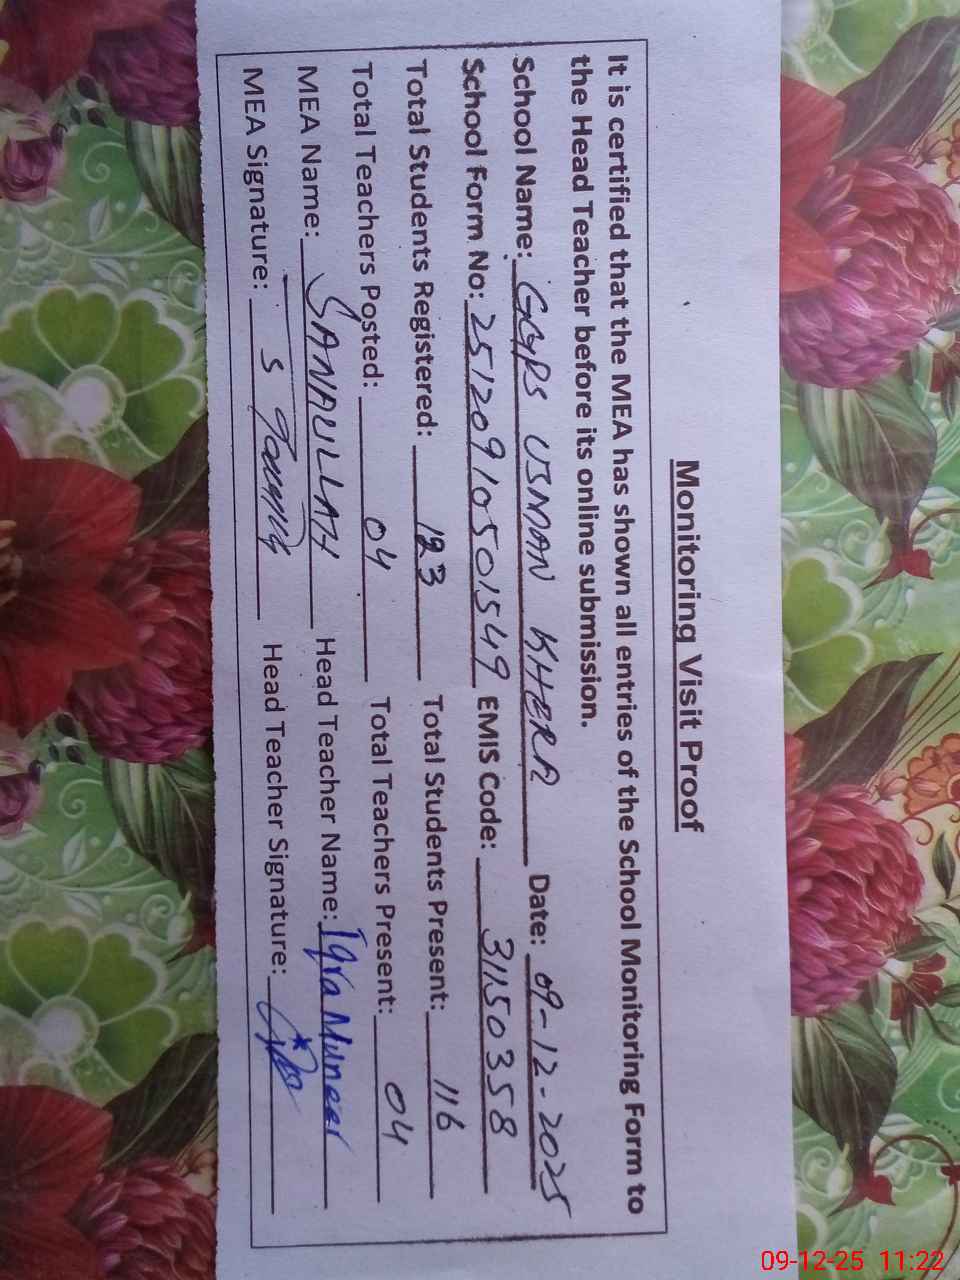 Monitoring Visit Proof
It is certified that the MEA has shown all entries of the School Monitoring Form to
the Head Teacher before its online submission.
School Name: GGPS USMAN KHERA Date: 09-12-2025
School Form No: 25120910501549 EMIS Code: 31150358
Total Students Registered: 123 Total Students Present: 116
Total Teachers Posted: 04 Total Teachers Present: 04
MEA Name: SANAULLAH Head Teacher Name: Iqra Muneer
MEA Signature: S Head Teacher Signature:
09-12-25 11:22